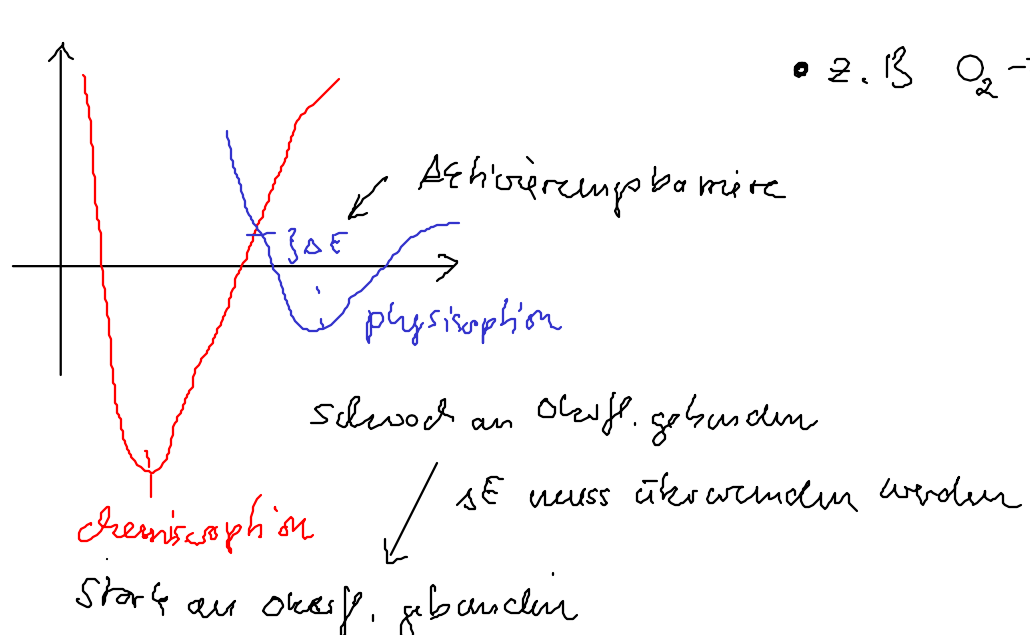 • z.B O₂ -
Aktivierungsbarriere
} ΔE
physisorption
schwach an Oberfl. gebunden
ΔE muss überwunden werden
chemisorption
Stark an Oberfl. gebunden